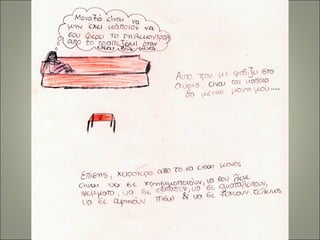 Μοναξιά είναι να
μην έχει κάποιον να
σου φέρει το τηλεκοντρόλ
από το τραπεζάκι όταν
είσαι
Αυτό που με φοβίζει στο
αύριο είναι ότι
θα μείνω μόνη μου....
Επίσης, χειρότερο από το να είσαι μόνος
είναι να σε χρησιμοποιούν, να σου λένε
ψέμματα, να σε να σε εγκαταλείπουν,
να σε αφήνουν πίσω & να σε ξεχνούν τελείως